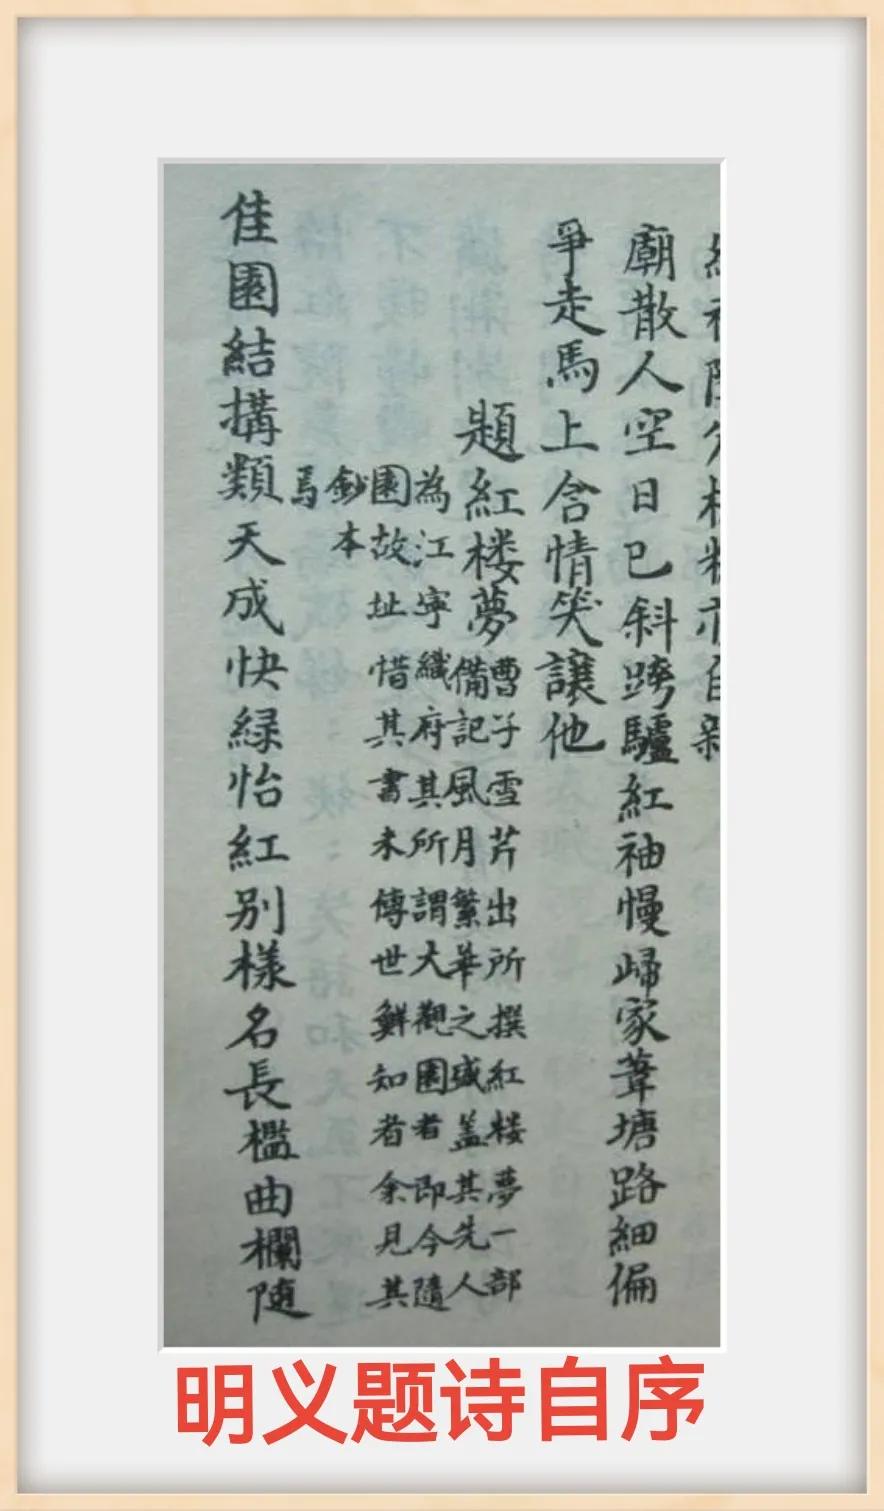 廟散人空日已斜跨驢紅袖慢歸家葦塘路細偏
爭走馬上含情笑讓他
題紅楼夢
曹子雪芹出所撰紅楼夢一部
備記風月繁華之盛盖其先人
為江寧織府其所謂大觀園者即今隨
園故址惜其書未傳世鮮知者余見其
鈔本
焉
佳園結構類天成快緑怡紅别樣名長檻曲欄隨
明义题诗自序